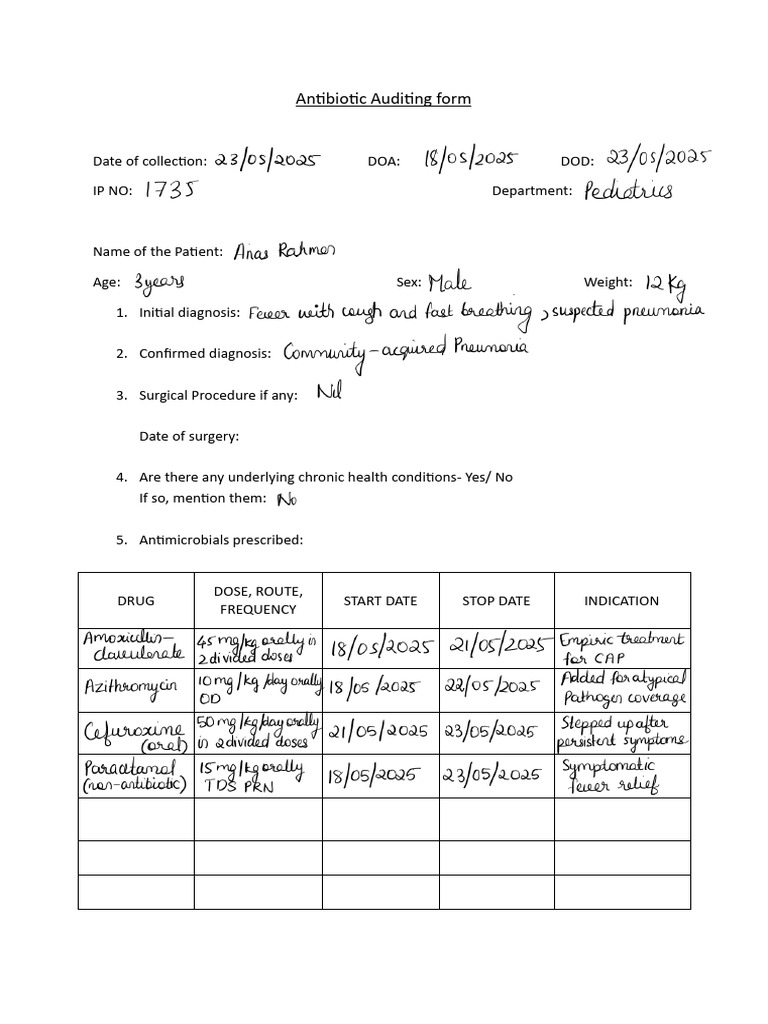 Antibiotic Auditing form
Date of collection: 23/05/2025 DOA: 18/05/2025 DOD: 23/05/2025
IP NO: 1735 Department: Pediatrics
Name of the Patient: Anas Rahman
Age: 3 years Sex: Male Weight: 12 Kg
1. Initial diagnosis: Fever with cough and fast breathing, suspected pneumonia
2. Confirmed diagnosis: Community-acquired Pneumonia
3. Surgical Procedure if any: Nil
Date of surgery:
4. Are there any underlying chronic health conditions- Yes/ No
If so, mention them: No
5. Antimicrobials prescribed:
DRUG DOSE, ROUTE, FREQUENCY START DATE STOP DATE INDICATION
Amoxicillin-clavulanate 45 mg/kg orally in 2 divided doses 18/05/2025 21/05/2025 Empiric treatment for CAP
Azithromycin 10 mg/kg/day orally OD 18/05/2025 22/05/2025 Added for atypical Pathogen coverage
Cefuroxime (oral) 50 mg/kg/day orally in 2 divided doses 21/05/2025 23/05/2025 Stepped up after persistent symptoms
Paracetamol (non-antibiotic) 15 mg/kg orally TDS PRN 18/05/2025 23/05/2025 Symptomatic fever relief